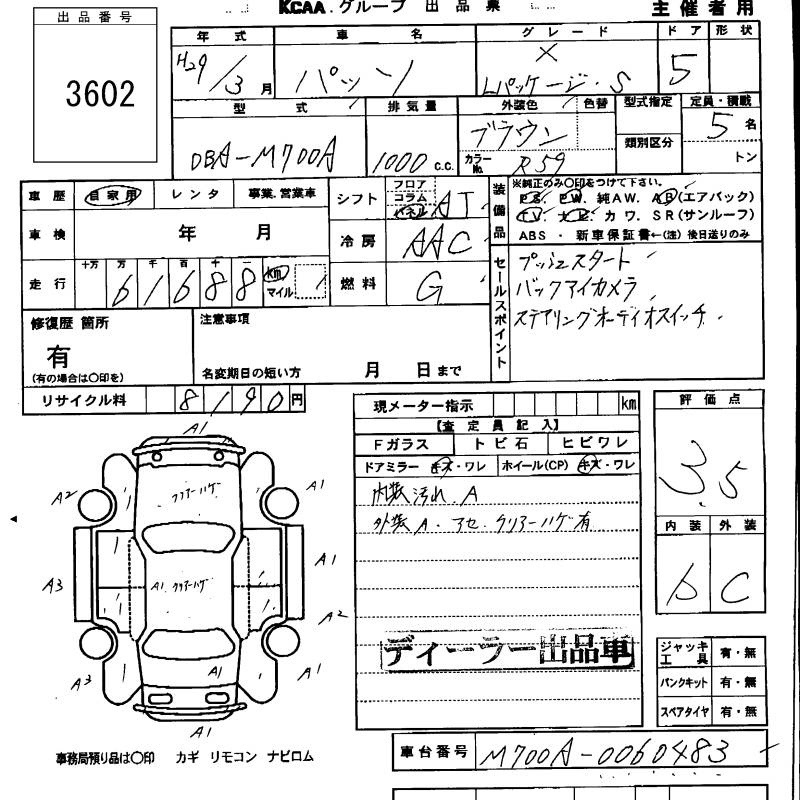 KCAA グループ 出品票
主催者用
出品番号
3602
年式 車名 グレード ドア 形状
H29/3月 パッソ X Lパッケージ・S 5
型式 排気量 外装色 色替 型式指定 定員・積載
DBA-M700A 1000c.c. ブラウン 類別区分 5名
カラーNo. R59 トン
車歴 自家用 レンタ 事業.営業車
シフト フロア コラム パネル AT
装備品 ※純正のみ○印をつけて下さい。
PS. PW. 純AW. AB(エアバック)
TV. ナビ. カワ. SR(サンルーフ)
ABS ・ 新車保証書←(注) 後日送りのみ
車検 年 月
冷房 AAC
走行 十万 万 千 百 十 61688 km マイル
燃料 G
セールスポイント
プッシュスタート
バックアイカメラ
ステアリングオーディオスイッチ
修復歴 箇所
有
(有の場合は○印を)
注意事項
名変期日の短い方 月 日まで
リサイクル料 8190円
現メーター指示 km
【査定員記入】
Fガラス トビ石 ヒビワレ
ドアミラー キズ・ワレ ホイール(CP) キズ・ワレ
内装 汚れ. A
外装 A. アセ. クリアーハゲ有
ディーラー出品車
評価点
3.5
内装 外装
b C
ジャッキ工具 有・無
パンクキット 有・無
スペアタイヤ 有・無
A1
クリアーハゲ
A2 A1
A3 A1 クリアーハゲ A1
A2
A3 A1 A1
A1
事務局預り品は○印 カギ リモコン ナビロム
車台番号 M700A-0060483